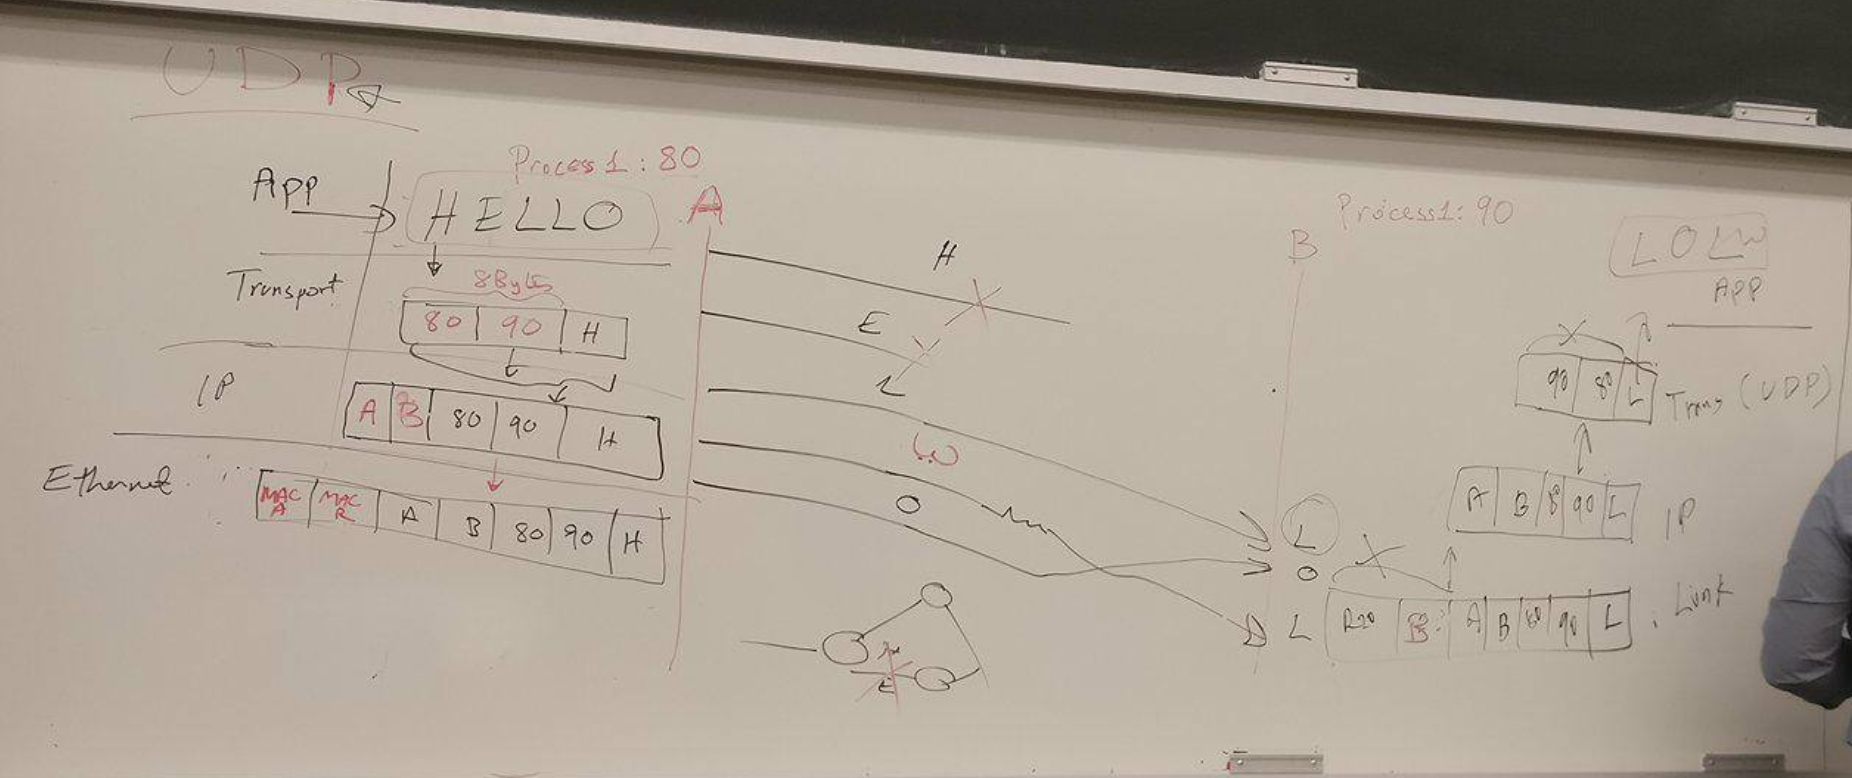 UDP
Process1: 80
App HELLO A
Transport 8Bytes
80 90 H
IP A B 80 90 H
Ethernet MAC A MAC R A B 80 90 H
H
E
L
O
Process1: 90
B
APP
90 80 L Trans (UDP)
A B 8 90 L IP
L
O
L B A B 80 90 L Link